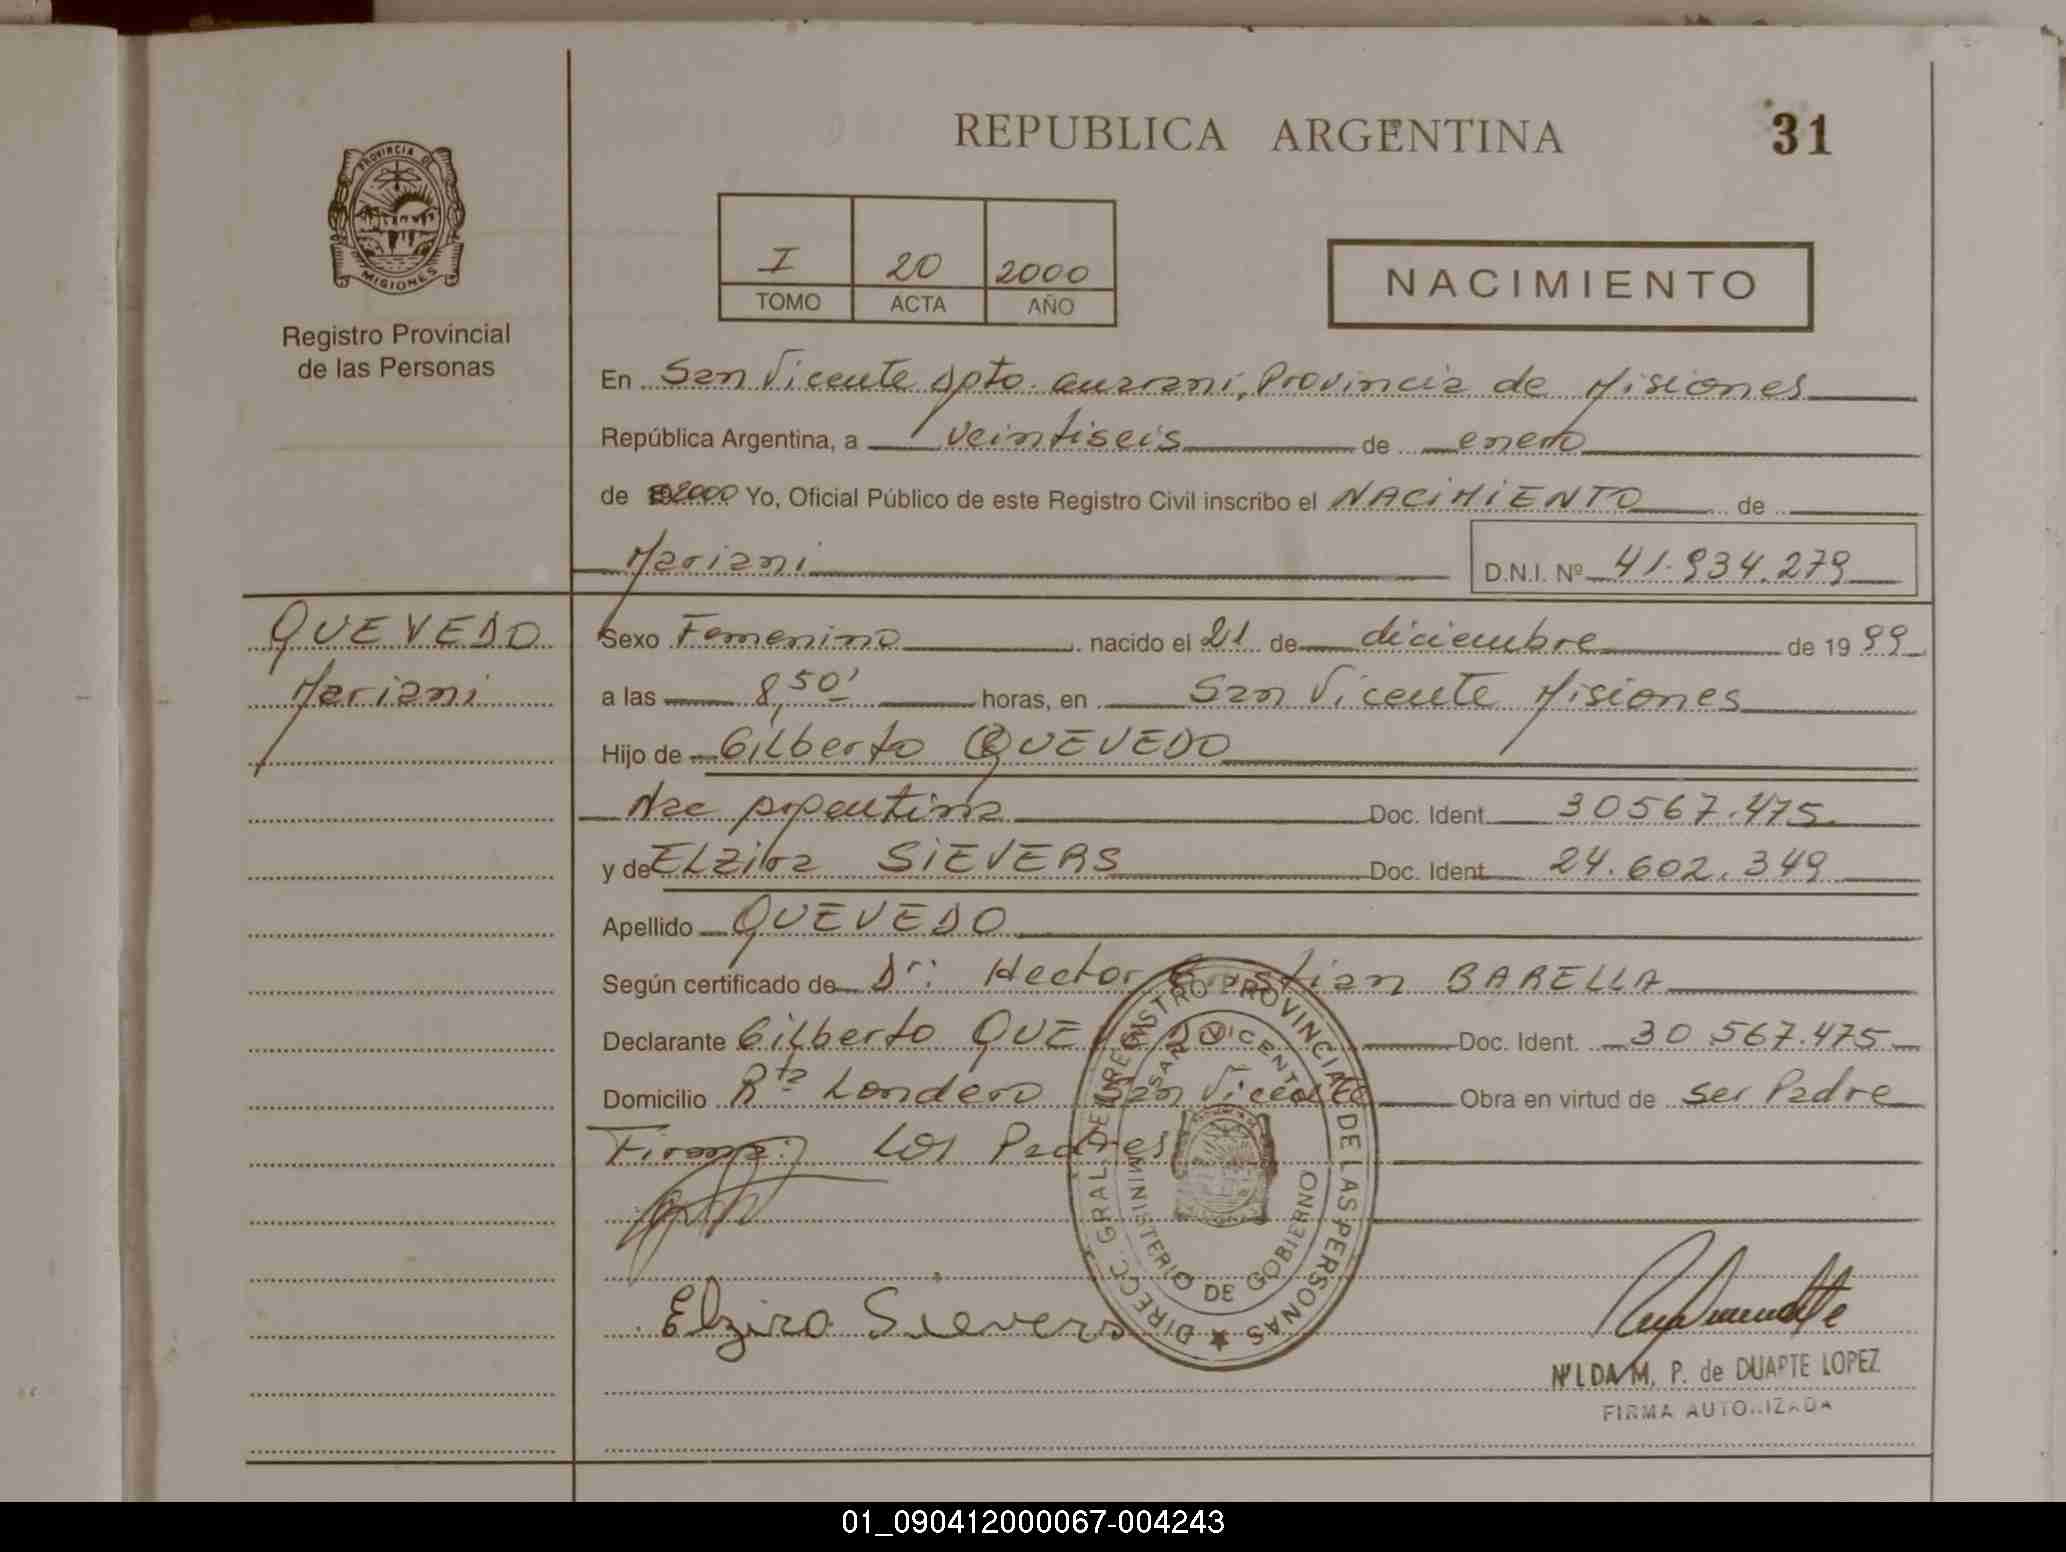 REPUBLICA ARGENTINA
31
PROVINCIA DE
MISIONES
Registro Provincial
de las Personas
I 20 2000
TOMO ACTA AÑO
NACIMIENTO
En San Vicente Dpto. Guarani, Provincia de Misiones
República Argentina, a veintiseis de enero
de 2000 Yo, Oficial Público de este Registro Civil inscribo el NACIMIENTO de
Mariani D.N.I. Nº 41.934.279
QUEVEDO
Mariani
Sexo Femenino nacido el 21 de diciembre de 1999
a las 8,50' horas, en San Vicente Misiones
Hijo de Gilberto QUEVEDO
Nac argentina Doc. Ident 30567.475
y de Elzira SIEVERS Doc. Ident 24.602.349
Apellido QUEVEDO
Según certificado de Dr: Hector Cristian BARELLA
Declarante Gilberto QUEVEDO Doc. Ident. 30.567.475
Domicilio Rta Londero San Vicente Obra en virtud de ser Padre
Firman: Los Padres
Elzira Sievers
DIRECC. GRAL. DEL REGISTRO PROVINCIAL DE LAS PERSONAS
SAN VICENTE
MINISTERIO DE GOBIERNO
NILDA M. P. de DUARTE LOPEZ
FIRMA AUTORIZADA
01_090412000067-004243